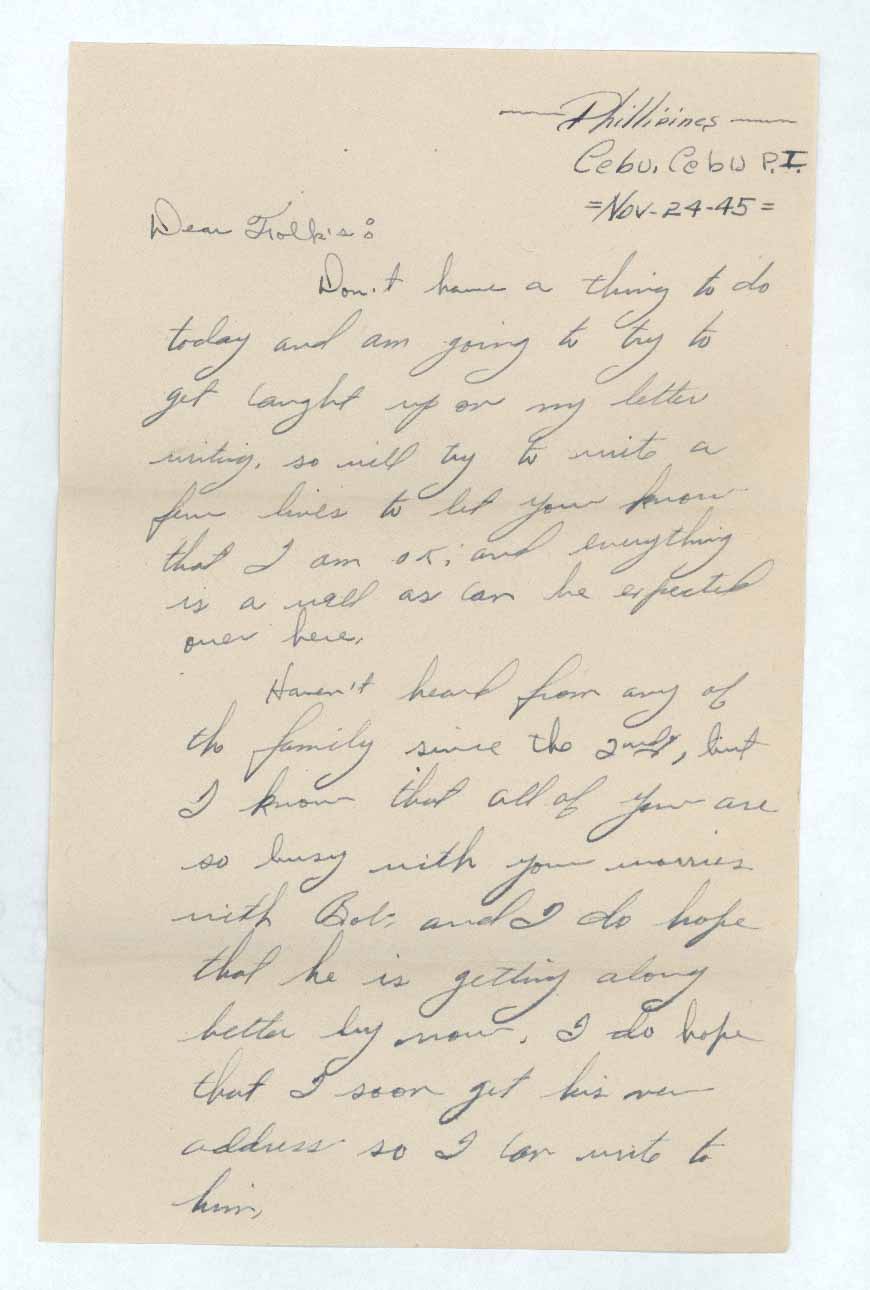 Phillipines
Cebu, Cebu P.I.
=Nov-24-45=
Dear Folk's:
Don't have a thing to do
today and am going to try to
get caught up on my letter
writing, so will try to write a
few lines to let you know
that I am OK; and everything
is a well as can be expected
over here.
Haven't heard from any of
the family since the 2nd, but
I know that all of you are
so busy with your worries
with Bob; and I do hope
that he is getting along
better by now. I do hope
that I soon get his new
address so I can write to
him,